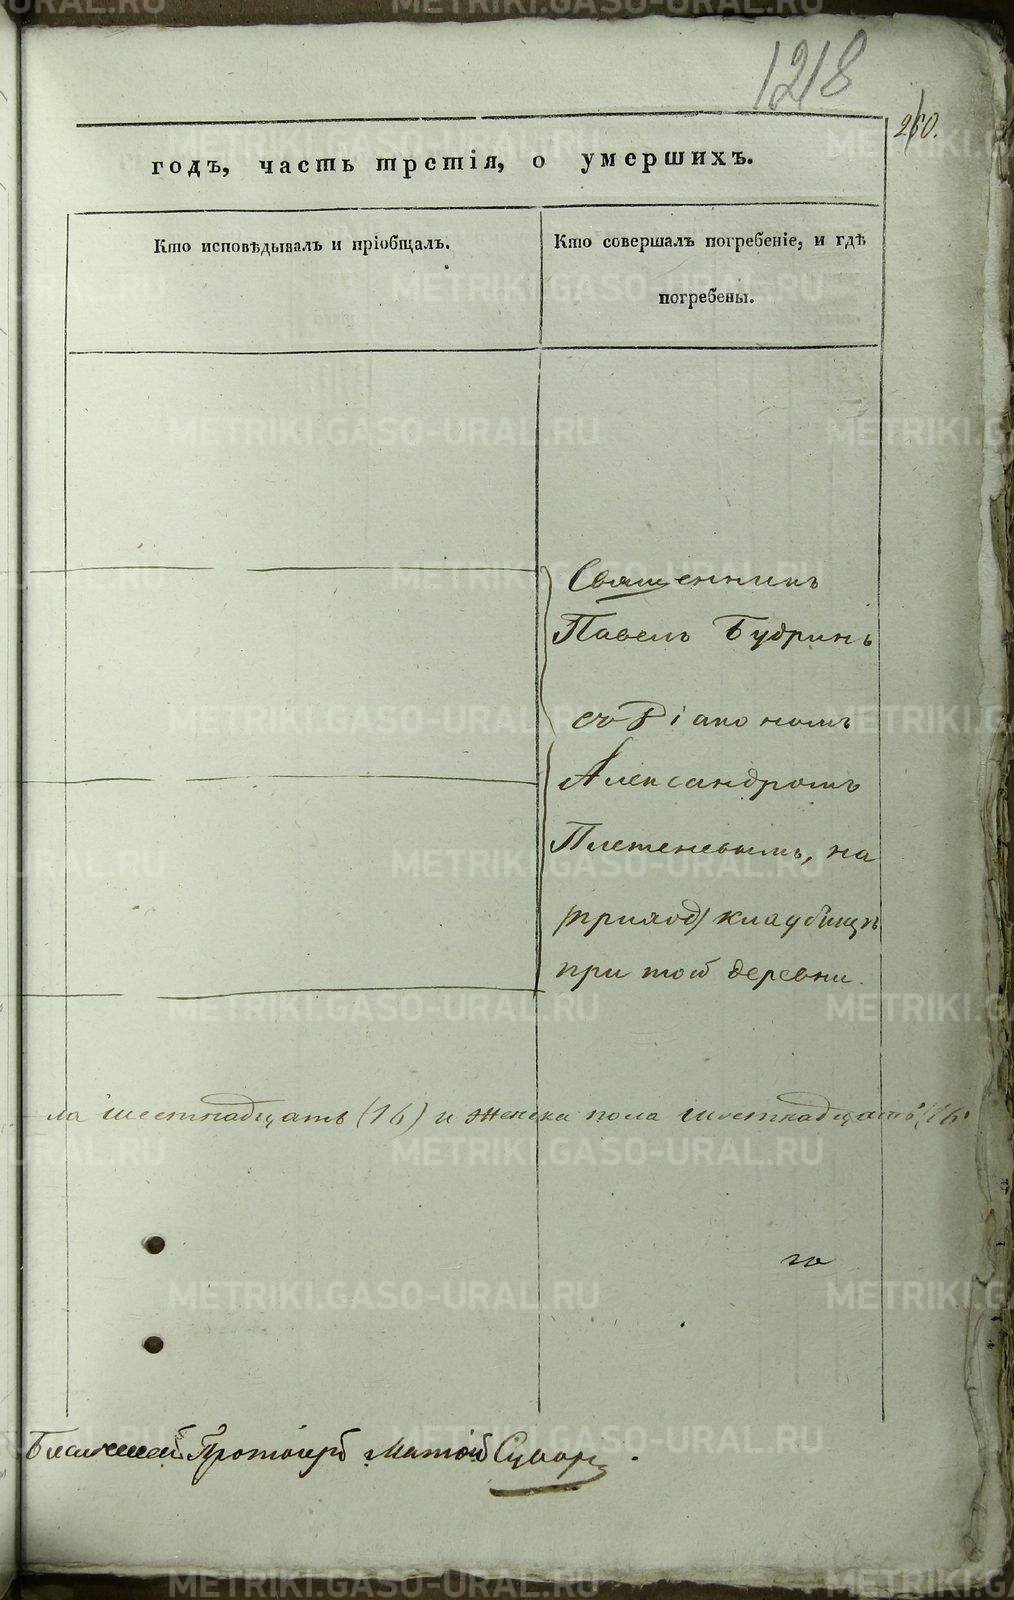 1218
260.
годъ, часть третія, о умершихъ.
Кто исповѣдывалъ и пріобщалъ.
Кто совершалъ погребеніе, и гдѣ
погребены.
Священникъ
Павелъ Будринъ
съ Діакономъ
Александромъ
Плетеневымъ, на
приход кладбищѣ
при той деревни.
ла шестнадцать (16) и женска пола шестнадцать (16.
го
Протоіерей Матѳей
METRIKI.GASO-URAL.RU